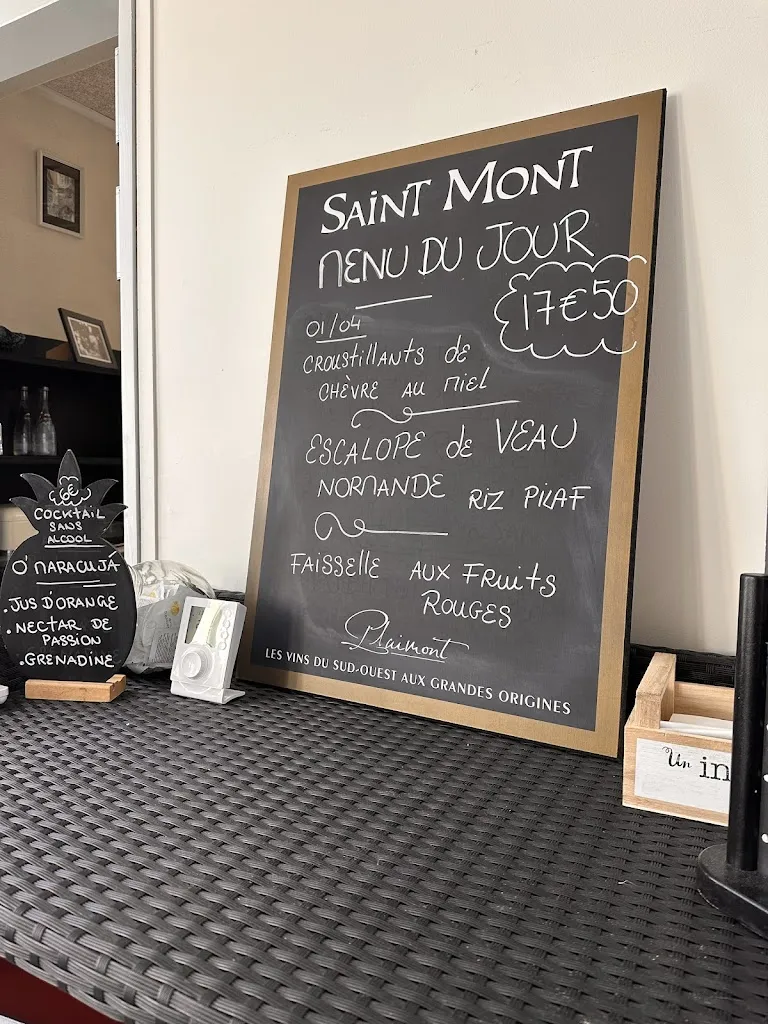 SAINT MONT
MENU DU JOUR
17€50
01/04
CROUSTILLANTS de
CHÈVRE AU MIEL
ESCALOPE de VEAU
NORMANDE RIZ PILAF
FAISSELLE AUX FRUITS
ROUGES
Plaimont
LES VINS DU SUD-OUEST AUX GRANDES ORIGINES
COCKTAIL
SANS
ALCOOL
O'MARACUJÁ
. JUS D'ORANGE
. NECTAR DE
PASSION
. GRENADINE
Un in